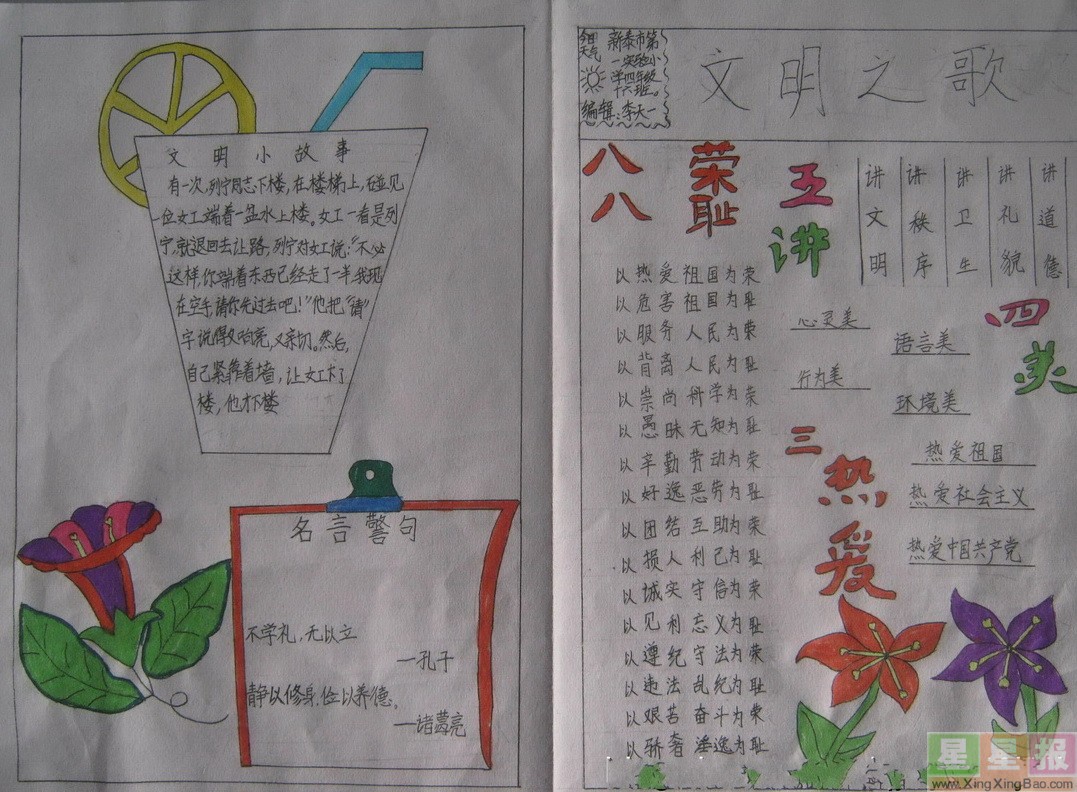 文明小故事
有一次,列宁同志下楼,在楼梯上,碰见
一位女工端着一盆水上楼。女工一看是列
宁,就退回去让路,列宁对女工说:"不必
这样,你端着东西已经走了一半,我现
在空手,请你先过去吧!"他把"请"
字说得又响亮,又亲切。然后,
自己紧靠着墙,让女工上了
楼,他才下楼
名言警句
不学礼,无以立
—孔子
静以修身,俭以养德。
—诸葛亮
今日
天气
新泰市第
一实验小
学四年级
十六班。
编辑:李天一
文明之歌
八荣
八耻
以热爱祖国为荣
以危害祖国为耻
以服务人民为荣
以背离人民为耻
以崇尚科学为荣
以愚昧无知为耻
以辛勤劳动为荣
以好逸恶劳为耻
以团结互助为荣
以损人利己为耻
以诚实守信为荣
以见利忘义为耻
以遵纪守法为荣
以违法乱纪为耻
以艰苦奋斗为荣
以骄奢淫逸为耻
五讲
讲文明
讲秩序
讲卫生
讲礼貌
讲道德
四美
心灵美
语言美
行为美
环境美
三热爱
热爱祖国
热爱社会主义
热爱中国共产党
星星报
www.XingXingBao.com